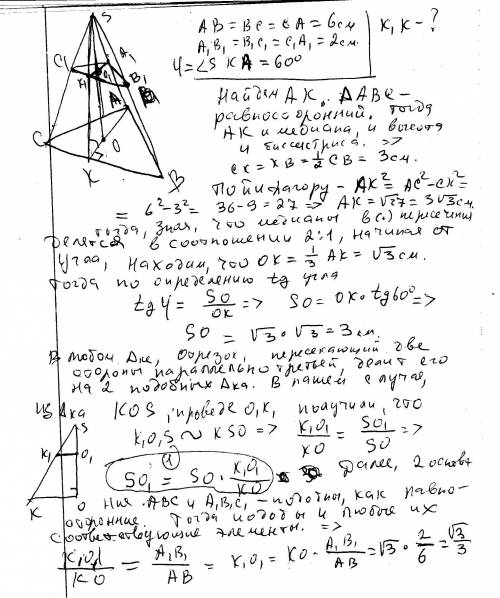 AB = BC = CA = 6см
A₁B₁ = B₁C₁ = C₁A₁ = 2см.
K₁K - ?
φ = ∠SKA = 60°
S
C₁
A₁
B₁
A
C
O
K
B
Найдем AK. ΔABC -
равносторонний. Тогда
AK и медиана, и высота
и биссектриса. =>
CK = KB = 1/2 CB = 3см.
По Пифагору - AK² = AC² - CK² =
= 6² - 3² = 36 - 9 = 27 => AK = √27 = 3√3 см.
Тогда, зная, что медианы в (.) пересечения
делятся в соотношении 2:1, начиная от
угла, находим, что OK = 1/3 AK = √3 см.
Тогда по определению tg угла
tg φ = SO/OK => SO = OK · tg 60° =>
SO = √3 · √3 = 3 см.
В любом Δке, отрезок, пересекающий две
стороны параллельно третьей, делит его
на 2 подобных Δка. В нашем случае,
из Δка KOS, проведя O₁K₁ получили, что
K₁O₁S ~ KSO => K₁O₁/KO = SO₁/SO =>
S
K₁
O₁
K
O
① SO₁ = SO · K₁O₁/KO
Далее, 2 основа
ния ABC и A₁B₁C₁ - подобны, как равно-
сторонние. Тогда подобны и любые их
соответствующие элементы. =>
K₁O₁/KO = A₁B₁/AB = K₁O₁ = KO · A₁B₁/AB = √3 · 2/6 = √3/3